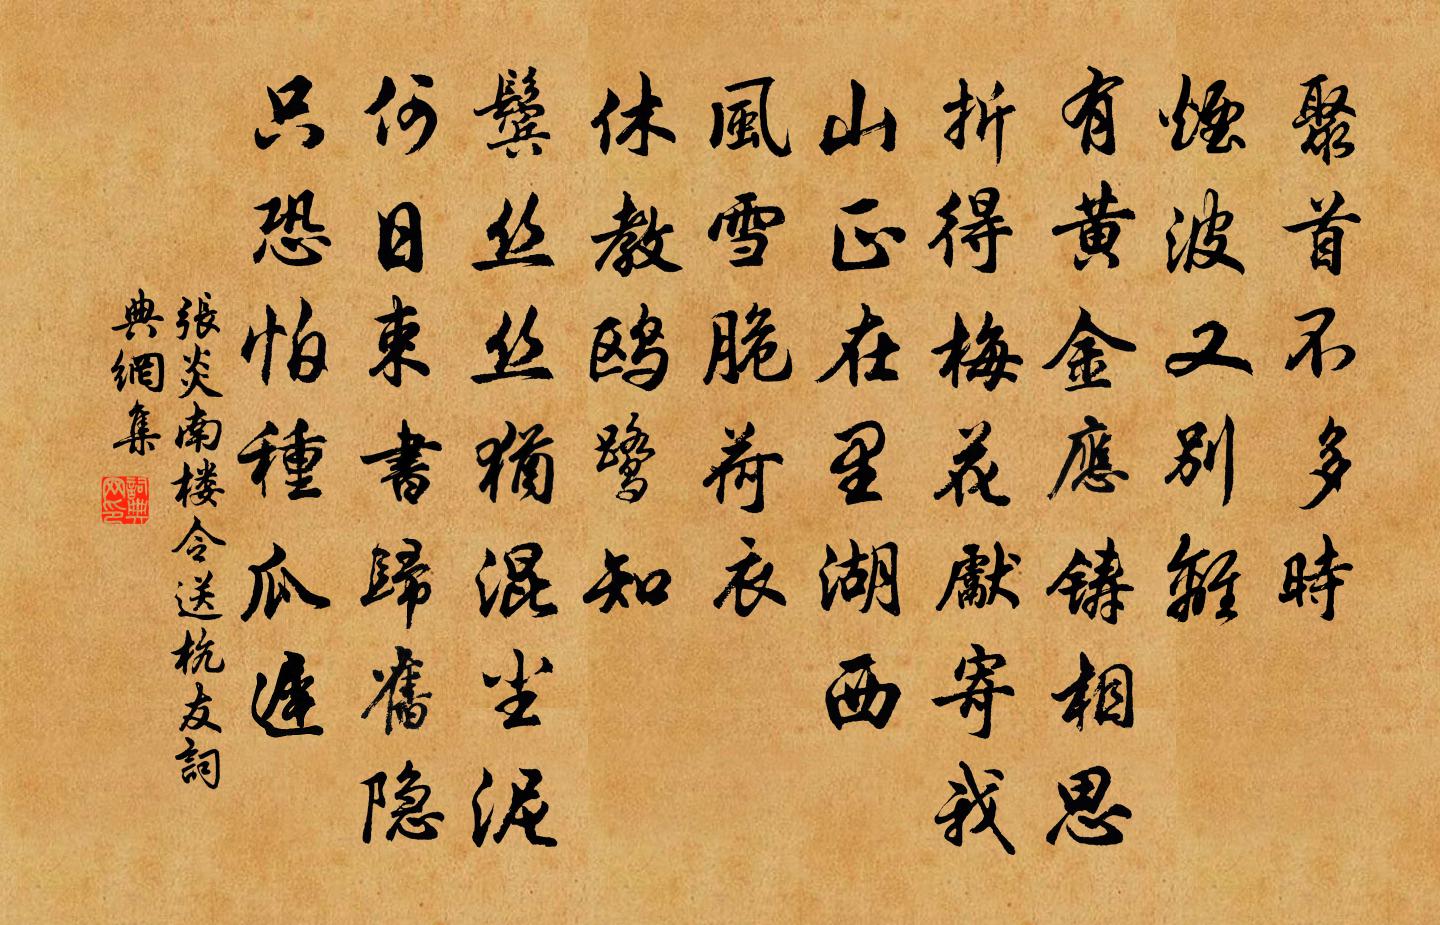 聚首不多時
煙波又別離
有黃金應鑄相思
折得梅花獻寄我
山正在里湖西
風雪脆荷衣
休教鸥鹭知
鬢丝丝犹混尘泥
何日束書歸舊隐
只恐怕種瓜遲
張炎南楼令送杭友詞
典網集
詞典网印